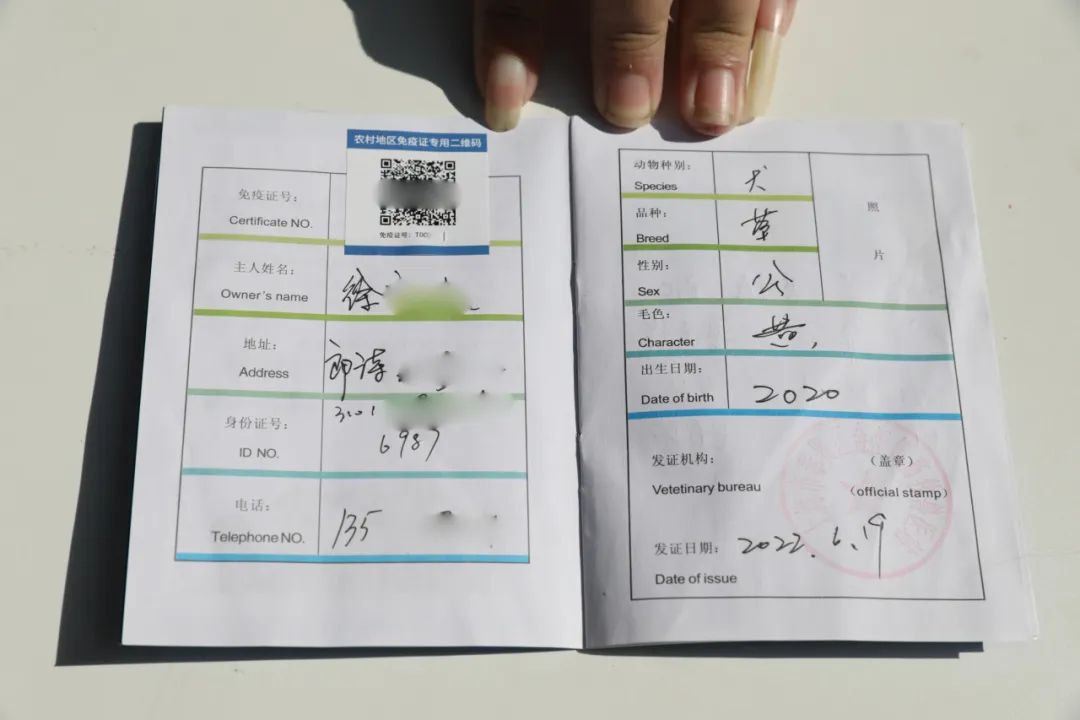 农村地区免疫证专用二维码
免疫证号：
Certificate NO.
免疫证号：T00
主人姓名：
Owner's name
徐
地址：
Address
身份证号：
ID NO.
6987
电话：
Telephone NO.
135
动物种别：
Species
犬
品种：
Breed
草
性别：
Sex
公
毛色：
Character
黄
出生日期：
Date of birth
2020
照
片
发证机构：
（盖章）
Vetetinary bureau
（official stamp）
发证日期：
2022.6.19
Date of issue